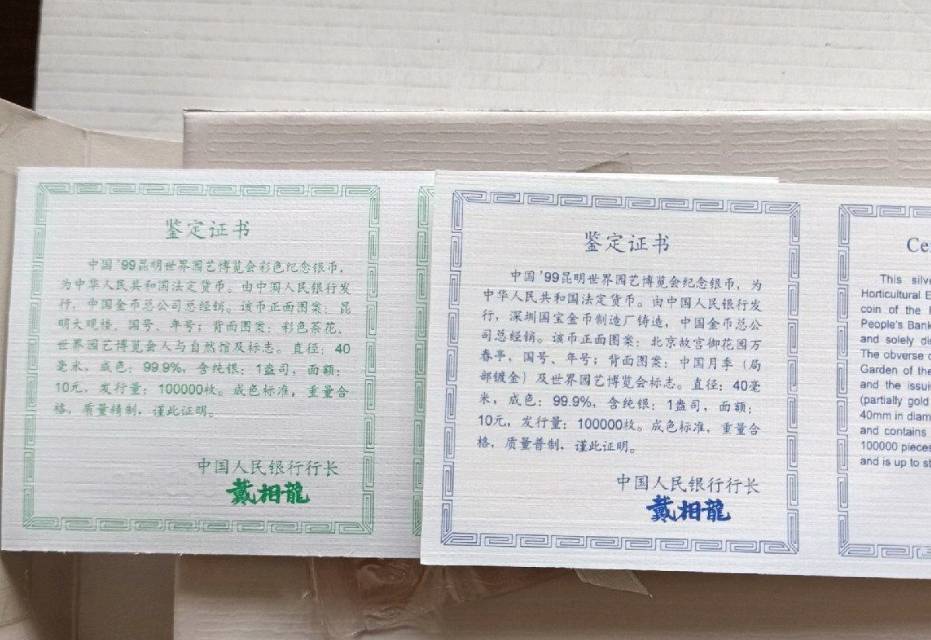 鉴定证书
中国'99昆明世界园艺博览会彩色纪念银币，
为中华人民共和国法定货币。由中国人民银行发
行，中国金币总公司总经销。该币正面图案：昆
明大观楼、国号、年号；背面图案：彩色茶花、
世界园艺博览会人与自然馆及标志。直径：40
毫米，成色：99.9%，含纯银：1盎司，面额：
10元，发行量：100000枚。成色标准，重量合
格，质量精制，谨此证明。
中国人民银行行长
戴相龍
鉴定证书
中国'99昆明世界园艺博览会纪念银币，为
中华人民共和国法定货币。由中国人民银行发
行，深圳国宝金币制造厂铸造，中国金币总公
司总经销。该币正面图案：北京故宫御花园万
春亭，国号、年号；背面图案：中国月季（局
部镀金）及世界园艺博览会标志。直径：40毫
米，成色：99.9%，含纯银：1盎司，面额：
10元，发行量：100000枚。成色标准，重量合
格，质量普制，谨此证明。
中国人民银行行长
戴相龍
Ce
This silve
Horticultural E
coin of the
People's Bank
and solely di
The obverse o
Garden of the
and the issui
(partially gold
40mm in diam
and contains
100000 pieces
and is up to st